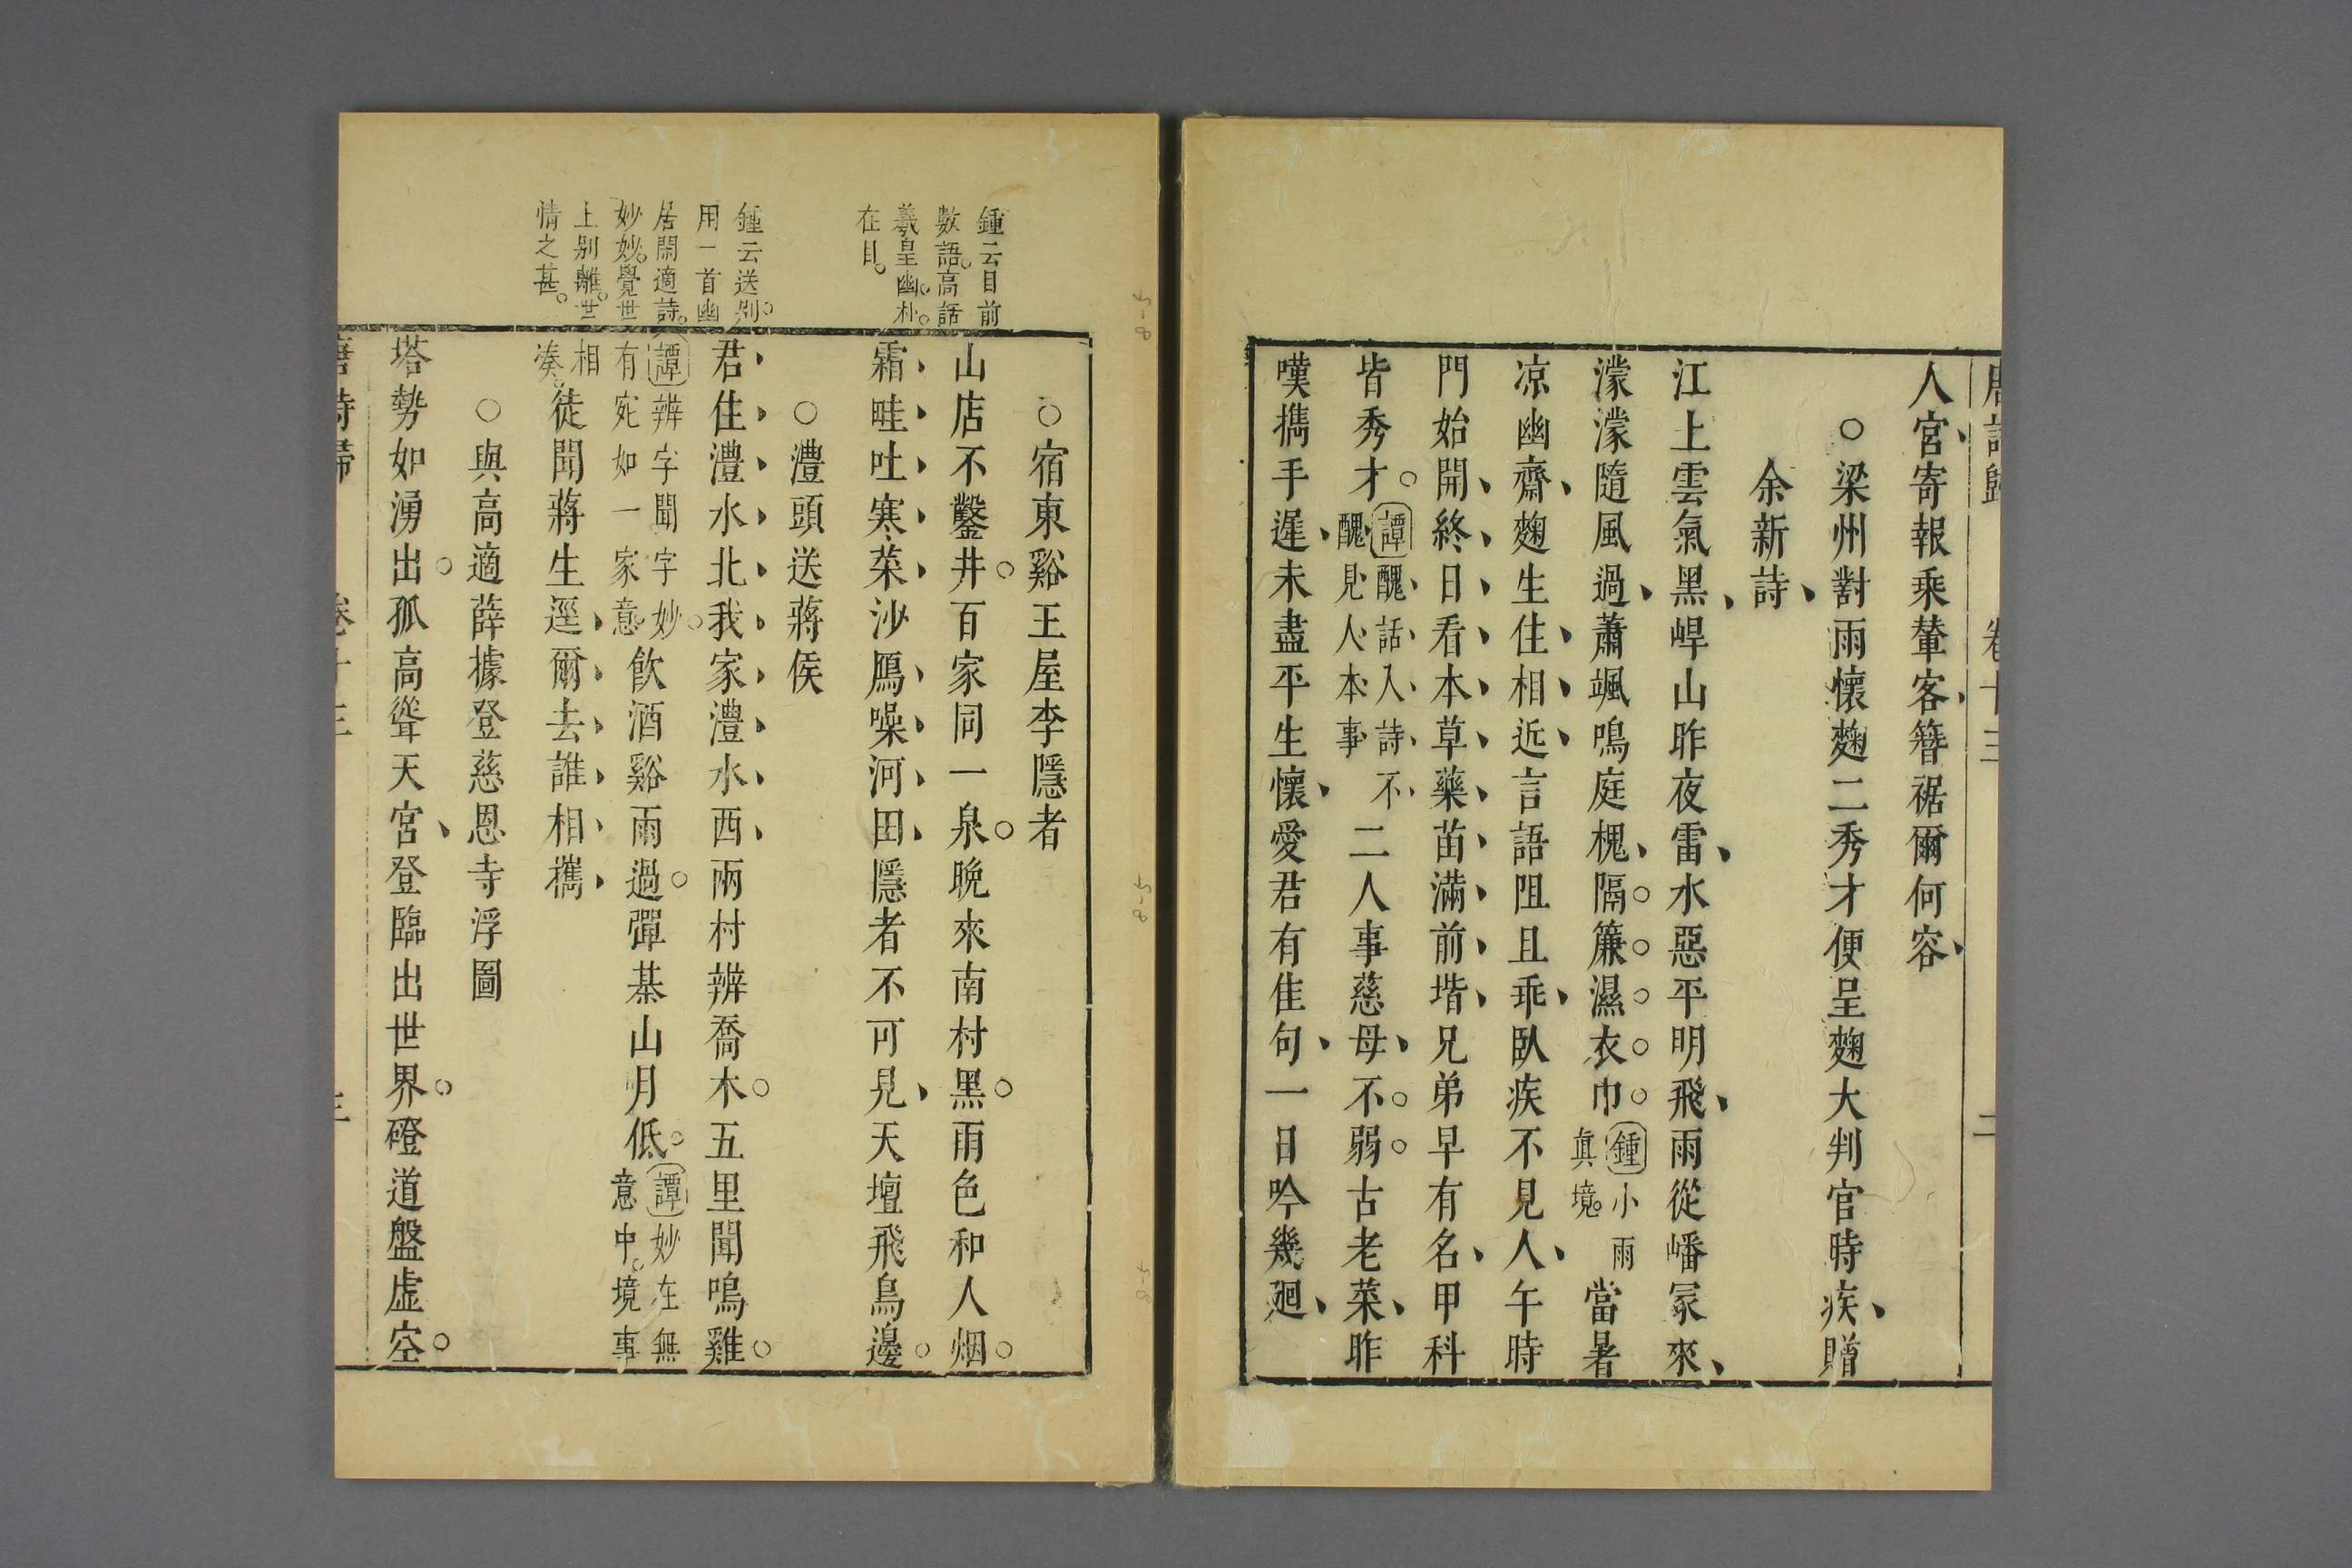 唐詩歸 卷十三 二
人宮寄報乘輦客簪裾爾何容
○梁州對雨懷麴二秀才便呈麴大判官時疾贈
余新詩
江上雲氣黑崲山昨夜雷水惡平明飛雨從嶓冢來
濛濛隨風過蕭颯鳴庭槐隔簾濕衣巾鍾小雨真境當暑
凉幽齋麴生住相近言語阻且乖臥疾不見人午時
門始開終日看本草藥苗滿前堦兄弟早有名甲科
皆秀才譚醜話入詩不醜見人本事二人事慈母不弱古老菜昨
嘆攜手遲未盡平生懷愛君有佳句一日吟幾廻
○宿東谿王屋李隱者
山店不鑿井百家同一泉晚來南村黑雨色和人烟
霜畦吐寒菜沙鴈噪河田隱者不可見天壇飛鳥邊
鍾云目前
數語高話
羲皇幽朴
在目
○澧頭送蔣侯
君住澧水北我家澧水西兩村辨喬木五里聞鳴雞
譚辨字聞字妙有宛如一家意飲酒谿雨過彈棊山月低譚妙在無意中境事
相湊徒聞蔣生逕爾去誰相攜
鍾云送別
用一首幽
居閒適詩
妙妙覺世
上別離世
情之甚
○與高適薛據登慈恩寺浮圖
塔勢如湧出孤高聳天宮登臨出世界磴道盤虛空
唐詩歸 卷十三 三